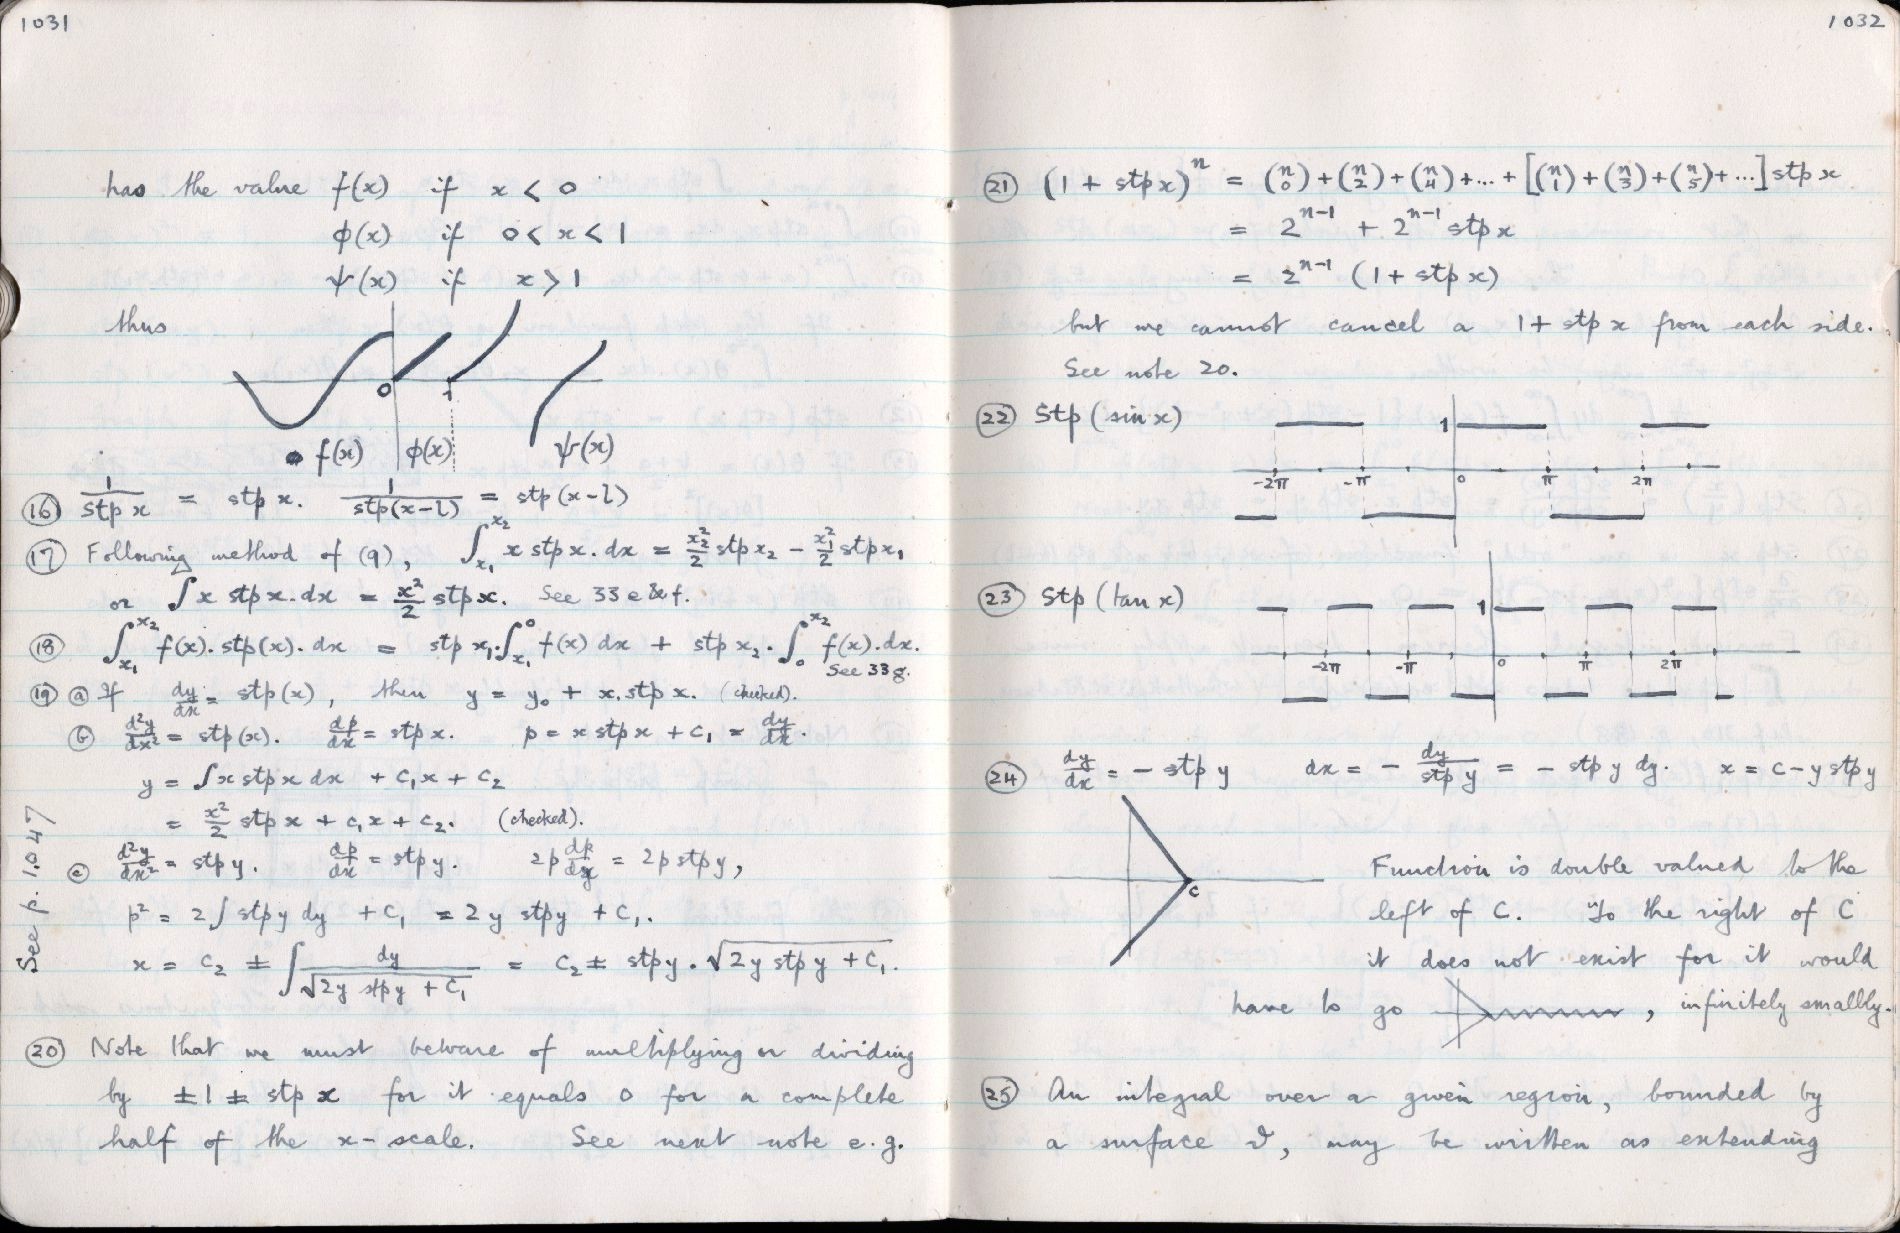 1031
has the value f(x) if x < 0
φ(x) if 0 < x < 1
ψ(x) if x > 1
thus
0 1
f(x) φ(x) ψ(x)
⑯ 1/stp x = stp x. 1/stp(x-l) = stp(x-l)
⑰ Following method of (9), ∫_{x₁}^{x₂} x stp x. dx = x₂²/2 stp x₂ - x₁²/2 stp x₁
or ∫ x stp x. dx = x²/2 stp x. See 33 e & f.
⑱ ∫_{x₁}^{x₂} f(x). stp(x). dx = stp x₁. ∫_{x₁}^{0} f(x) dx + stp x₂. ∫_{0}^{x₂} f(x). dx.
See 33 g.
⑲ ⓐ If dy/dx = stp(x), then y = y₀ + x. stp x. (checked).
ⓑ d²y/dx² = stp(x). dp/dx = stp x. p = x stp x + c₁ = dy/dx.
y = ∫ x stp x dx + c₁x + c₂
= x²/2 stp x + c₁x + c₂. (checked).
ⓒ d²y/dx² = stp y. dp/dx = stp y. 2p dp/dy = 2p stp y,
p² = 2∫ stp y dy + c₁ = 2y stp y + c₁.
x = c₂ ± ∫ dy/√(2y stp y + c₁) = c₂ ± stp y. √(2y stp y + c₁).
See p. 1047
⑳ Note that we must beware of multiplying or dividing
by ±1 ± stp x for it equals 0 for a complete
half of the x-scale. See next note e.g.
1032
㉑ (1 + stp x)ⁿ = (n 0) + (n 2) + (n 4) + ... + [(n 1) + (n 3) + (n 5) + ...] stp x
= 2ⁿ⁻¹ + 2ⁿ⁻¹ stp x
= 2ⁿ⁻¹ (1 + stp x)
but we cannot cancel a 1 + stp x from each side.
See note 20.
㉒ Stp (sin x) 1
-2π -π 0 π 2π
㉓ Stp (tan x) 1
-2π -π 0 π 2π
㉔ dy/dx = - stp y dx = - dy/stp y = - stp y dy. x = c - y stp y
c
Function is double valued to the
left of C. To the right of C
it does not exist for it would
have to go , infinitely smallly.
㉕ An integral over a given region, bounded by
a surface ϑ, may be written as extending